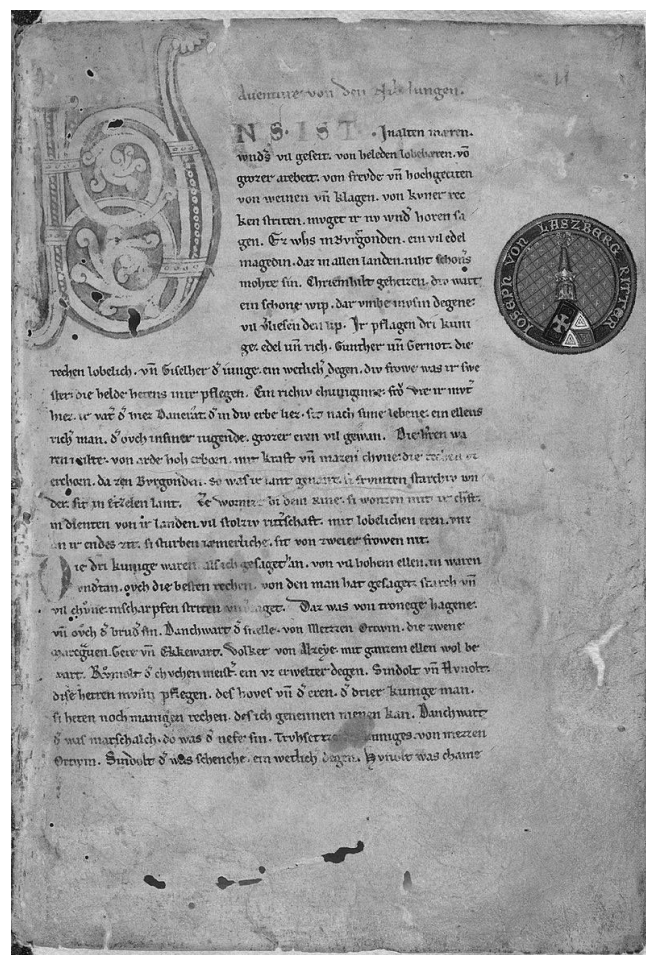 Auenture von den Nibelungen.
VNS. IST. Inalten mæren.
wnds vil geseit. von heleden lobebæren. vō
grozer arebeit. von frevde vn̄ hochgeciten
von weinen vn̄ klagen. von kvner rec
ken striten. mvget ir nv wnd horen sa
gen. Ez whs in Bvrgonden. ein vil edel
magedin. daz in allen landen. niht schoners
mohte sin. Chriemhilt geheizen. div wart
ein schone wip. dar vmbe mvsin degene.
vil vliesen den lip. Ir pflagen dri kuni
ge. edel vn̄ rich. Gunther vn̄ Gernot. die
rechen lobelich. vn̄ Giselher d̄ iunge. ein wetlich degen. div frowe was ir swe
ster. die helde hetens inir pflegen. Ein richiv chuniginne. frō Vte ir mvt̄
hiez. ir vat̄ d̄ hiez Dancrat. d̄ in div erbe liez. sit nach sime lebene. ein ellens
rich man. d̄ ovch insiner iugende. grozer eren vil gewan. Die h̄ren wa
ren milte. von arde hoh erborn. mit kraft vn̄ mazen chvne. die rechen vz
erchorn. da zen Bvrgonden. so was ir lant genant. si frvmten starchiv wn
der. sit in Etzelen lant. Ze wormze bi dem Rine. si wonten mit ir chft.
in dienten von ir landen. vil stolziv rittschaft. mit lobelichen eren. vnz
an ir endes zit. si sturben iæmerliche. sit von zweier frowen nit.
Die dri kunige waren. als ich gesaget han. von vil hohem ellen. in waren
vndtan. ovch die besten rechen. von den man hat gesaget. starch vn̄
vil chvne. inscharpfen striten vnverzaget. Daz was von tronege hagene.
vn̄ ovch d̄ brud̄ sin. Danchwart d̄ snelle. von Metzzen Ortwin. die zwene
marcgven. Gere vn̄ Ekkewart. Volker von Alzeye. mit ganzem ellen wol be
wart. Rvmolt d̄ chvchen meist̄. ein vz erwelter degen. Sindolt vn̄ Hvnolt.
dise herren mvsin pflegen. des hoves vn̄ d̄ eren. d̄ drier kunige man.
si heten noch manigen rechen. des ich genennen nienen kan. Danchwart
d̄ was marschalch. do was d̄ nefe sin. Trvhsetze des kuniges. von metzzen
Ortwin. Sindolt d̄ was schenche. ein wetlich degen. Hvnolt was chame
IOSEPH VON LASZBERG RITTER